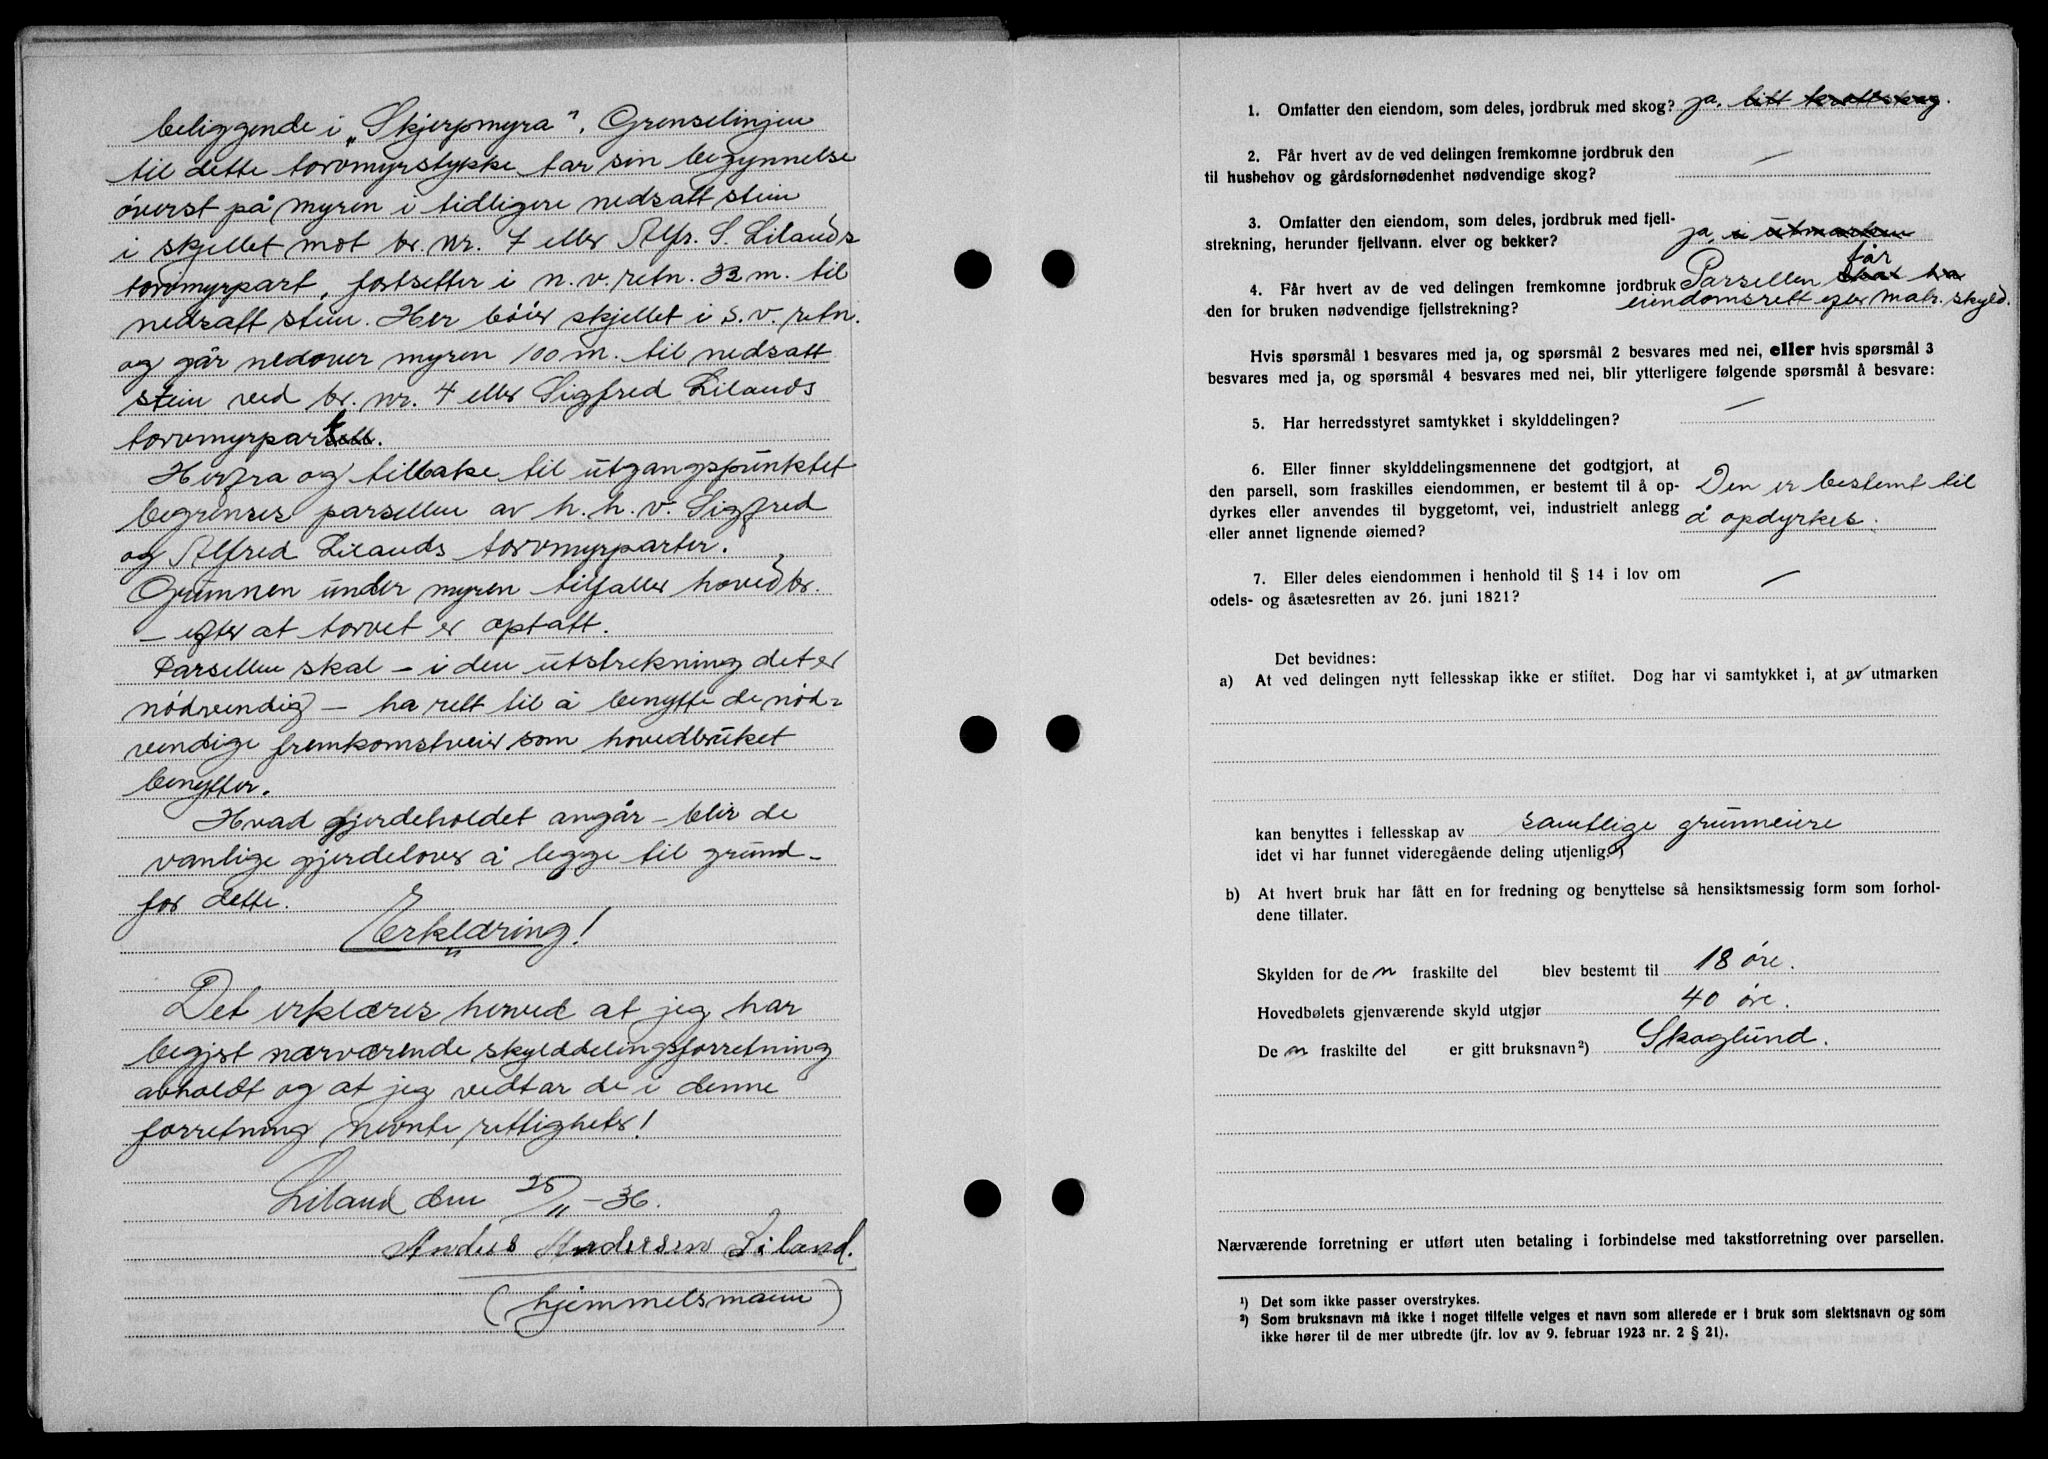 beliggende i „Skjerpmyra". Grenselinjen
til dette torvmyrstykke tar sin begynnelse
överst på myren i tidligere nedsatt stein
i skjellet mot br. nr. 7 eller Alfr. S. Lilands
torvmyrpart, fortsetter i n. v. retn. 32 m. til
nedsatt stein. Her böier skjellet i s. v. retn.
og går nedover myren 100 m. til nedsatt
stein ved br. nr. 4 eller Sigfred Lilands
torvmyrpart.
Herfra og tilbake til utgangspunktet
begrenses parsellen av h. h. v. Sigfred
og Alfred Lilands torvmyrparter.
Grunnen under myren tilfaller hovedbr.
– efter at torvet er optatt.
Parsellen skal – i den utstrekning det er
nödvendig – ha rett til å benytte de nöd-
vendige fremkomstveier som hovedbruket
benytter.
Hvad gjerdeholdet angår – blir de
vanlige gjerdelover å legge til grund-
for dette.
Erklæring!
Det erklæres herved at jeg har
begjært nærværende skylddelingsforretning
avholdt og at jeg vedtar de i denne
forretning nevnte rettigheter!
Liland den 25/11 – 36.
Anders Andersen Liland.
(hjemmelsmann)
1. Omfatter den eiendom, som deles, jordbruk med skog? ja, litt krattskog.
2. Får hvert av de ved delingen fremkomne jordbruk den
til husbehov og gårdsfornødenhet nødvendige skog? —
3. Omfatter den eiendom, som deles, jordbruk med fjell-
strekning, herunder fjellvann. elver og bekker? ja, i utmarken
får
4. Får hvert av de ved delingen fremkomne jordbruk Parsellen skal ha
den for bruken nødvendige fjellstrekning? eiendomsrett efter matr. skyld.
Hvis spørsmål 1 besvares med ja, og spørsmål 2 besvares med nei, eller hvis spørsmål 3
besvares med ja, og spørsmål 4 besvares med nei, blir ytterligere følgende spørsmål å besvare:
5. Har herredsstyret samtykket i skylddelingen? —
6. Eller finner skylddelingsmennene det godtgjort, at
den parsell, som fraskilles eiendommen, er bestemt til å op- Den er bestemt til
dyrkes eller anvendes til byggetomt, vei, industrielt anlegg å opdyrkes.
eller annet lignende øiemed?
7. Eller deles eiendommen i henhold til § 14 i lov om
odels- og åsætesretten av 26. juni 1821? —
Det bevidnes:
a) At ved delingen nytt fellesskap ikke er stiftet. Dog har vi samtykket i, at av utmarken
kan benyttes i fellesskap av samtlige grunneiere
idet vi har funnet videregående deling utjenlig.¹)
b) At hvert bruk har fått en for fredning og benyttelse så hensiktsmessig form som forhol-
dene tillater.
Skylden for den fraskilte del blev bestemt til 18 öre.
Hovedbølets gjenværende skyld utgjør 40 öre.
Den fraskilte del er gitt bruksnavn²) Skoglund.
Nærværende forretning er utført uten betaling i forbindelse med takstforretning over parsellen.
¹) Det som ikke passer overstrykes.
²) Som bruksnavn må ikke i noget tilfelle velges et navn som allerede er i bruk som slektsnavn og som
ikke hører til de mer utbredte (jfr. lov av 9. februar 1923 nr. 2 § 21).